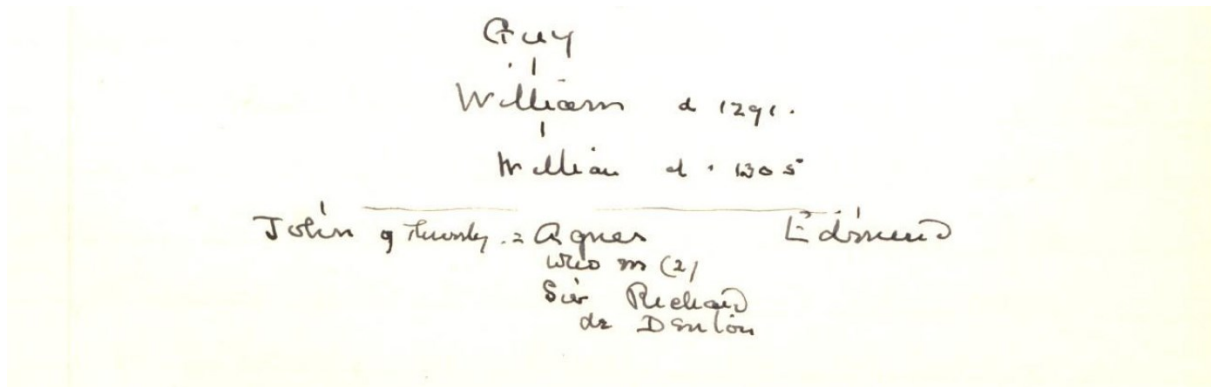 Guy
William d 1291.
William d. 1305
John of Thursby = Agnes Edmund
who m (2)
Sir Richard
de Denton